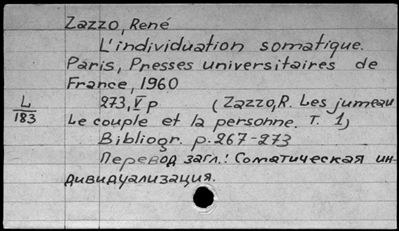 Zazzo, René
L'individuation somatique.
Paris, Presses universitaires de
France, 1960
L
183
273, V p (Zazzo, R. Les jumeau
Le couple et la personne. T. 1)
Bibliogr. p. 267-273
Перевод загл.: Соматическая ин-
дивидуализация.